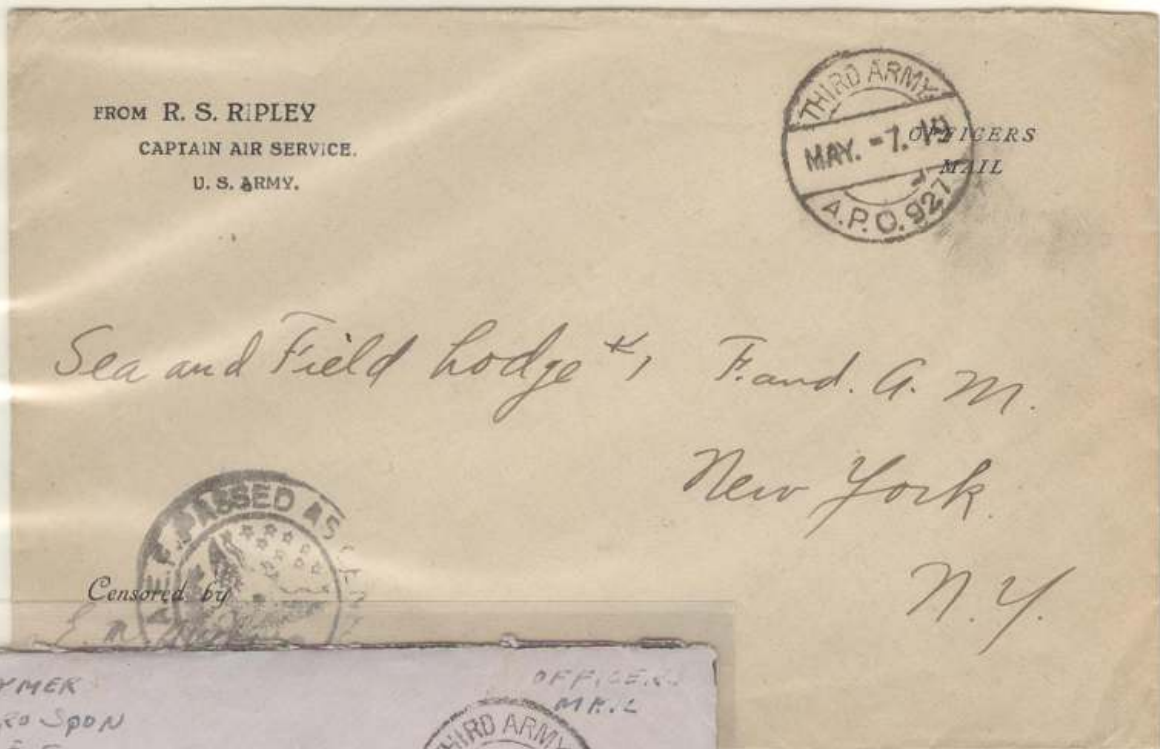 FROM R. S. RIPLEY
CAPTAIN AIR SERVICE.
U. S. ARMY.
THIRD ARMY
MAY. -7. 19
A.P.O. 927
OFFICERS
MAIL
Sea and Field Lodge #1 F. and. A. M.
New York.
N. Y.
A.E.F. PASSED AS
Censored by
E. M.
YMER
RO SPDN
OFFICERS
MAIL
THIRD ARMY